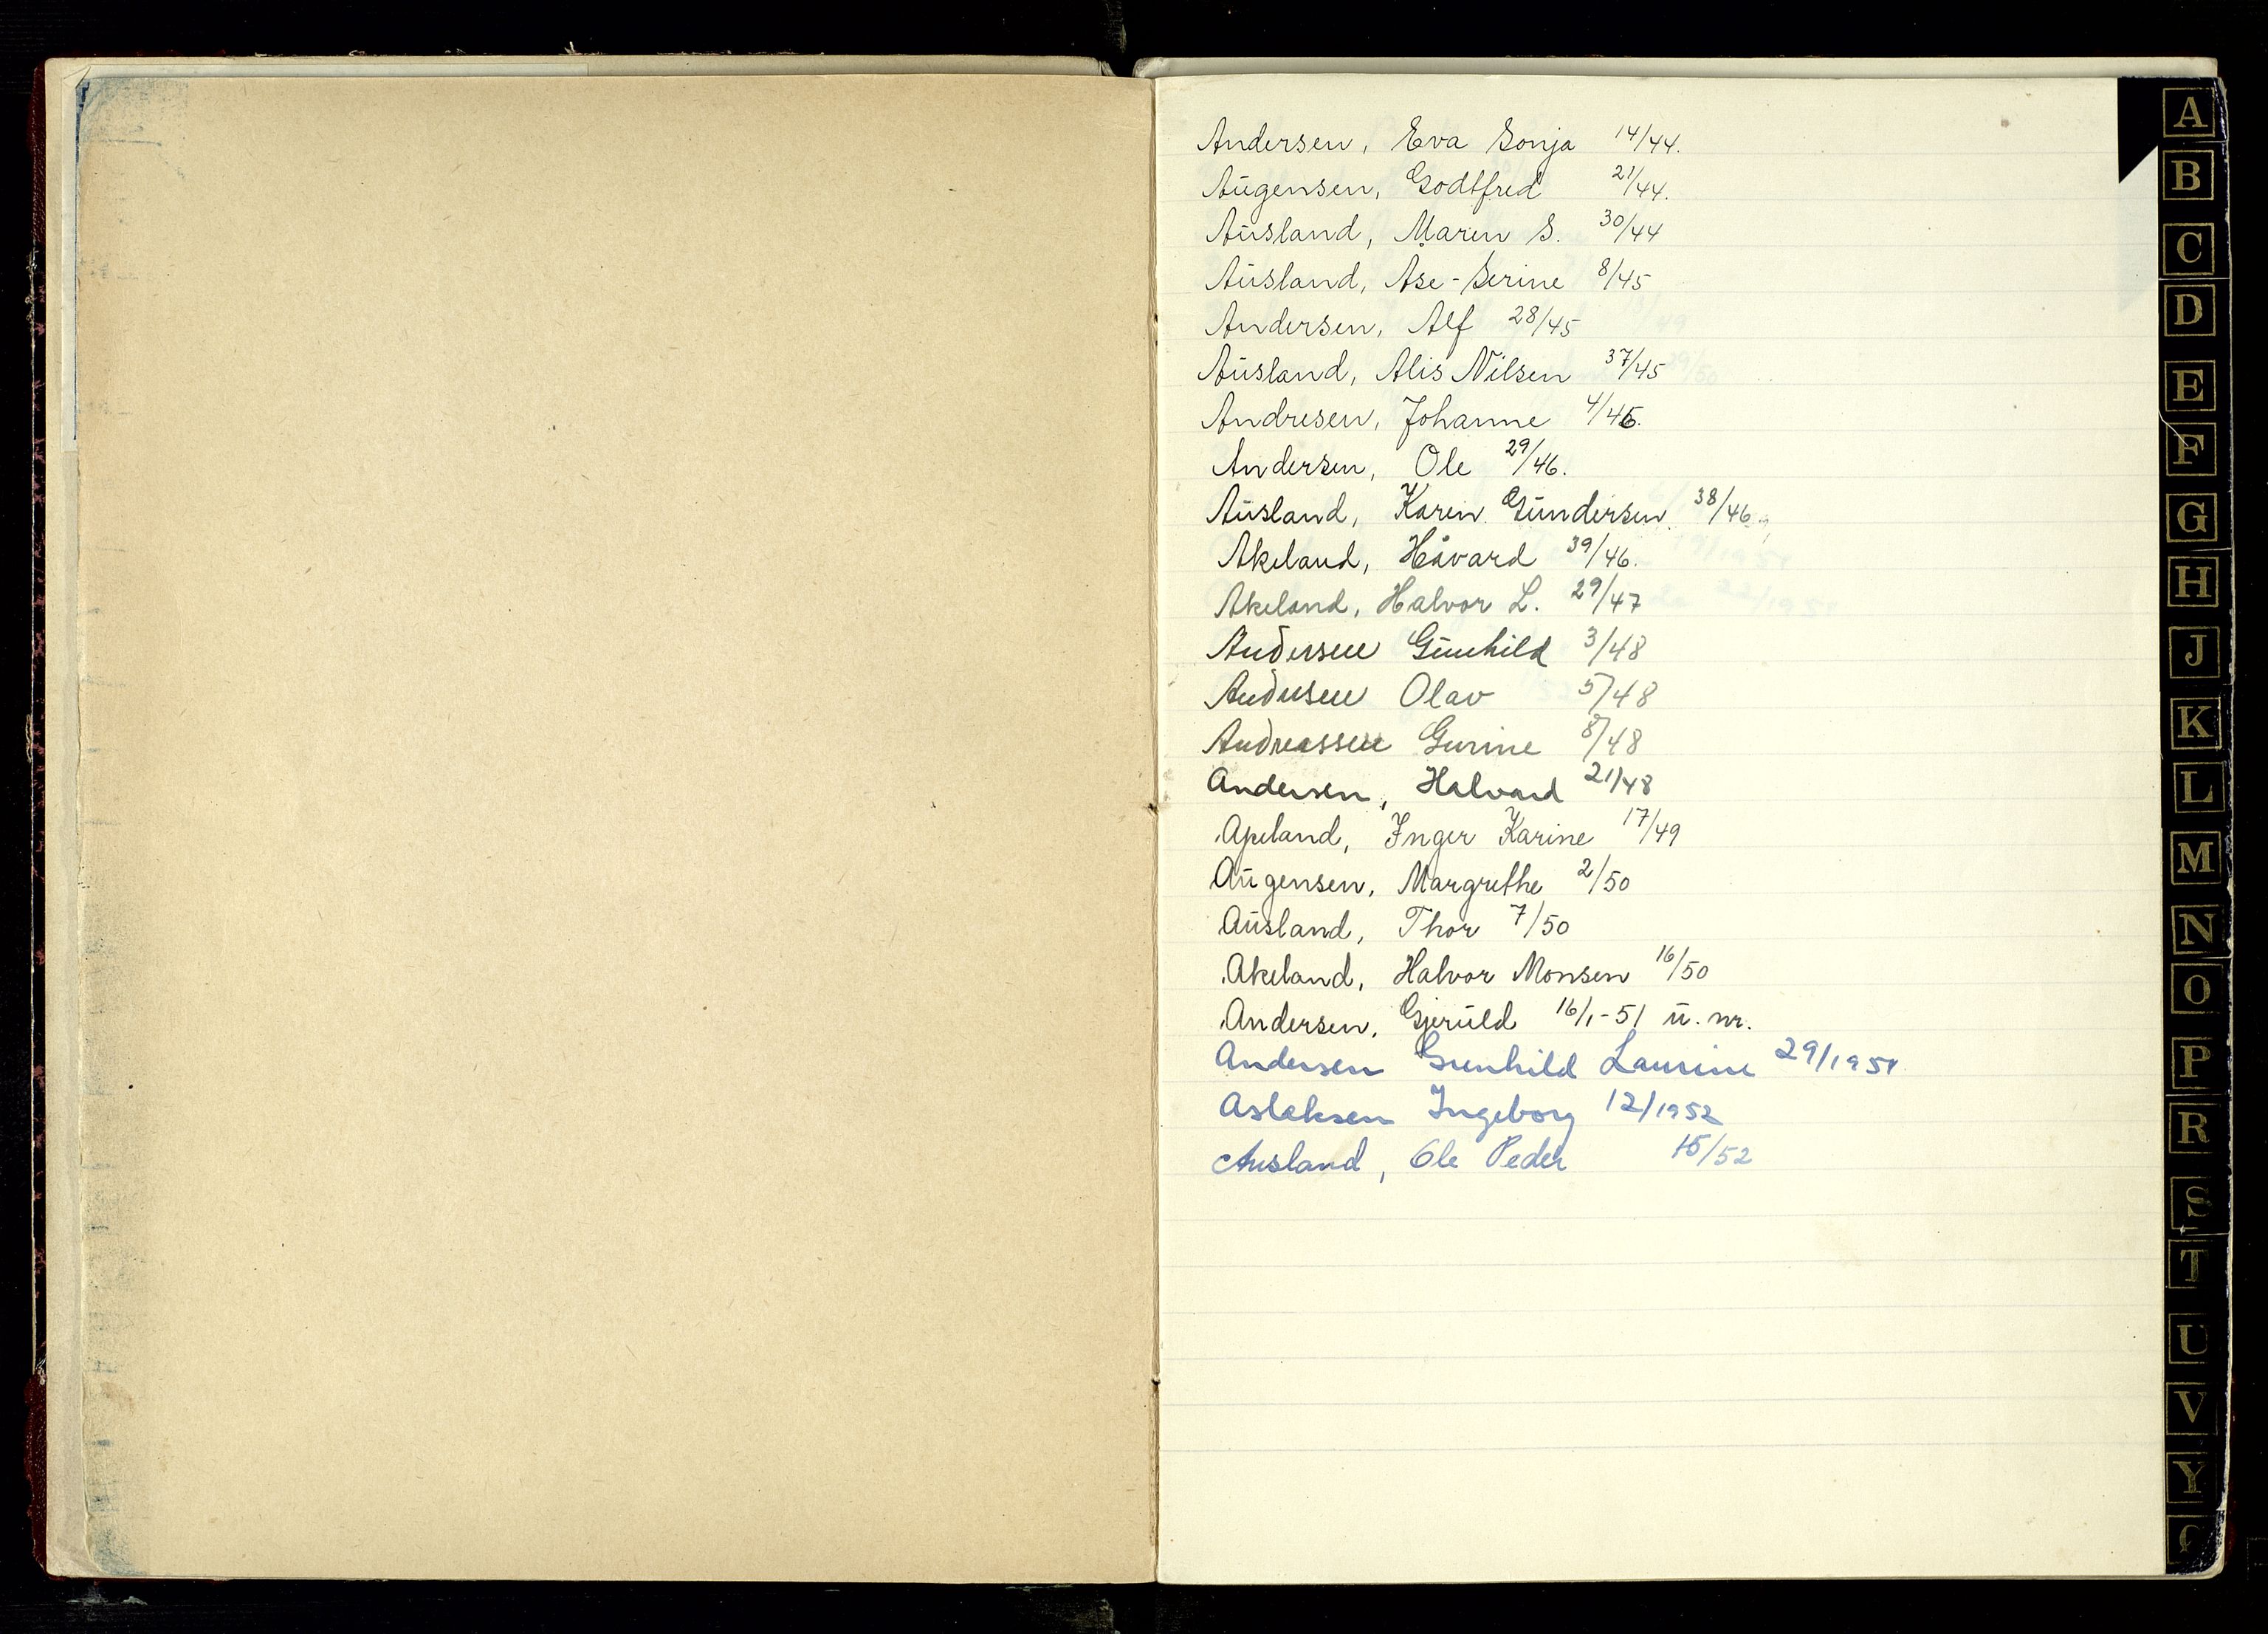 Andersen, Eva Sonja 14/44.
Augensen, Godtfred 21/44.
Ausland, Maren S. 30/44
Ausland, Åse-Serine 8/45
Andersen, Alf 28/45
Ausland, Alis Nilsen 37/45
Andresen, Johanne 4/46.
Andersen, Ole 29/46.
Ausland, Karen Gundersen. 38/46
Akeland, Håvard 39/46.
Akeland, Halvor L. 29/47
Andersen Gunhild 3/48
Andersen Olav 5/48
Andreassen Gurine 8/48
Andersen, Halvard 21/48
Apeland, Inger Karine 17/49
Augensen, Margrethe 2/50
Ausland, Thor 7/50
Akeland, Halvor Monsen 16/50
Andersen, Gjeruld 16/1-51 u. nr.
Andersen Gunhild Laurine 29/1951
Aslaksen Ingeborg 12/1952
Ausland, Ole Peder 15/52
A
B
C
D
E
F
G
H
J
K
L
M
N
O
P
R
S
T
U
V
Y